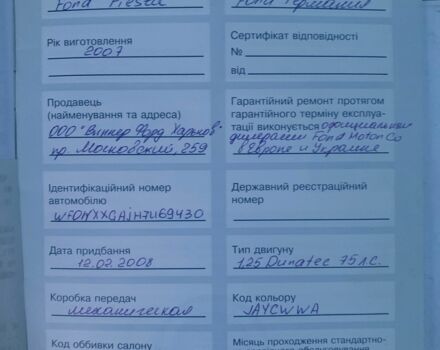 Ford Fiesta
Ford Германия
Рік виготовлення
2007
Сертифікат відповідності
№
від
Продавець
(найменування та адреса)
ООО "Виннер Форд Харьков"
пр. Московский, 259
Гарантійний ремонт протягом
гарантійного терміну експлуа-
тації виконується официальными
дилерами Ford Motor Co
в Европе и Украине
Ідентифікаційний номер
автомобілю
WF0HXXGAJH7U69430
Державний реєстраційний
номер
Дата придбання
12.02.2008
Тип двигуну
1,25 Duratec 75 л.с.
Коробка передач
механическая
Код кольору
JAYCWWA
Код оббивки салону
Місяць проходження стандартно-